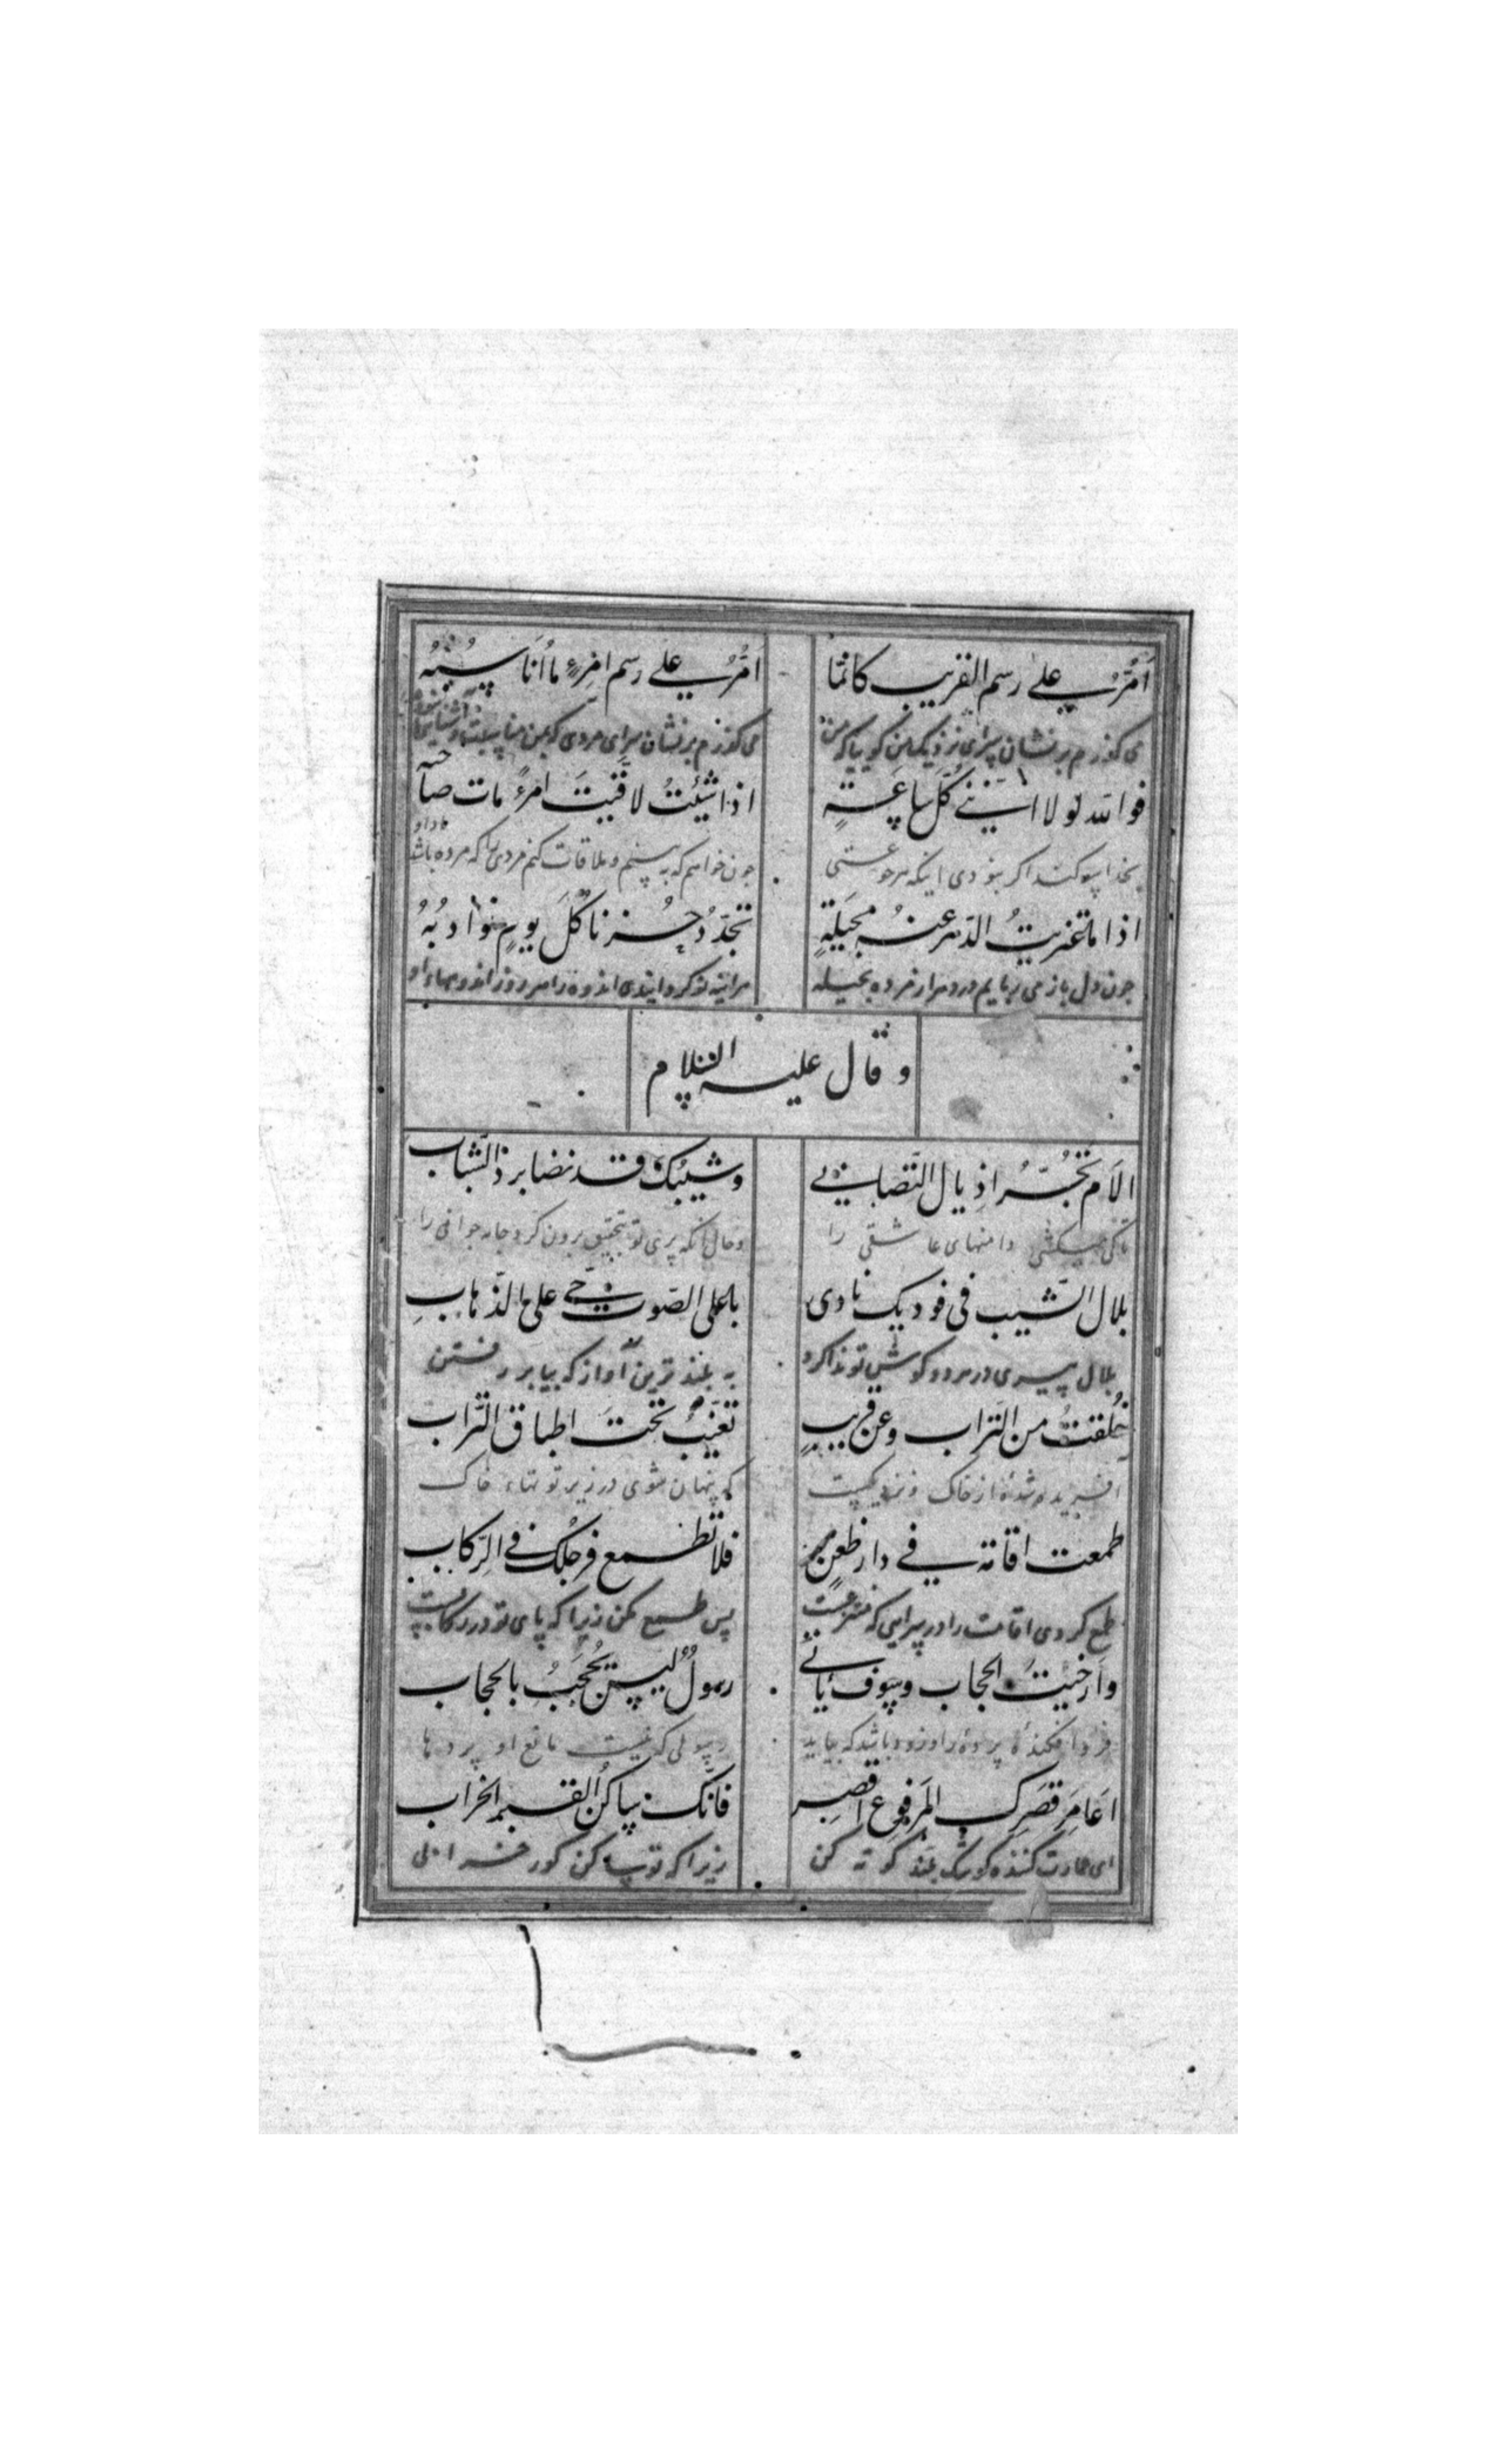 اَمُرُّ علی رسم القریب کانما
امُرُّ علی رسم امرِءٍ ما اُناسبُهُ
می کذرم بر نشان سرای نزدیک من کویا که من
می کذرم بر نشان سرای مردی که من
فوالله لولا اننی کل ساعةٍ
اذا شئتُ لاقَیتَ امرءً مات صاحبه
بخدا سوکند اکر نبودی اینکه
جون خواهم که به بینم و ملاقات کنم مردی را که مرده باشد
اذا ما الدهر عنه بحیلةٍ
تجدّدُ حُزنا کلَ یومٍ نوادبُهُ
جون دل باز می بحیله
اندوه را هر روز
و قال علیه السلام
الامَ تجُرُّ اذیال التصابی
وشیبُکَ قد نضا برد الشباب
تا کی میکشی دامنهای عاشقی را
وحال آنکه پیری تو بتحقیق برون کرد جامه جوانی را
بلال الشیب فی فودیک نادی
باعلی الصوت حی علی الذهابِ
بلال پیری در هر دو کوش تو ندا کرد
به بلند ترین آواز که بیا بر رفتن
خُلقتُ من التراب وعن قریبٍ
تغیبُ تحتَ اطباق التراب
افریده شدهٔ از خاک و نزدیکست
که پنهان شوی در زیر تو تهاء خاک
طمعت اقامة فی دار ظعنٍ
فلا تطمع فرجلُک فی الرِکاب
طمع کردی اقامت را در سرایی که
پس طمع مکن زیرا که پای تو در رکابست
وارخیتَ الحجاب وسوف یأتی
رسولٌ لیس یُحجَبُ بالحجاب
فرو افکندهٔ پرده را و زود باشد که بیاید
رسولی که نیست مانع او پردها
اعامِرَ قصرِک المرفوع اقصِر
فانّک ساکنُ القبر الخراب
ای عمارت کننده کوشک بلند کوته کن
زیرا که تو ساکن کور خرابی